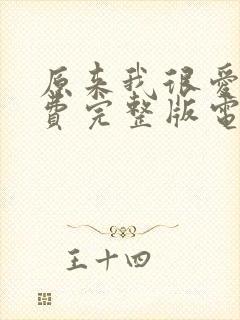 原来我很爱
費完整版電
王十四